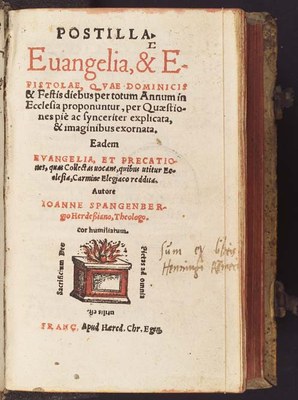 POSTILLAE
Euangelia, & E-
PISTOLAE, QVAE DOMINICIS
& Festis diebus per totum Annum in
Ecclesia proponuntur, per Quæstio-
nes piè ac synceriter explicata,
& imaginibus exornata.
Eadem
EVANGELIA, ET PRECATIO-
nes, quas Collectas vocant, quibus utitur Ec-
clesia, Carmine Elegiaco reddita.
Autore
IOANNE SPANGENBER-
gio Herdeßiano, Theologo.
cor humiliatum.
Sacrificium Deo
Pietas ad omnia
utilis est.
FRANC. Apud Hæred. Chr. Egen.
Sum ex libris
Henningi